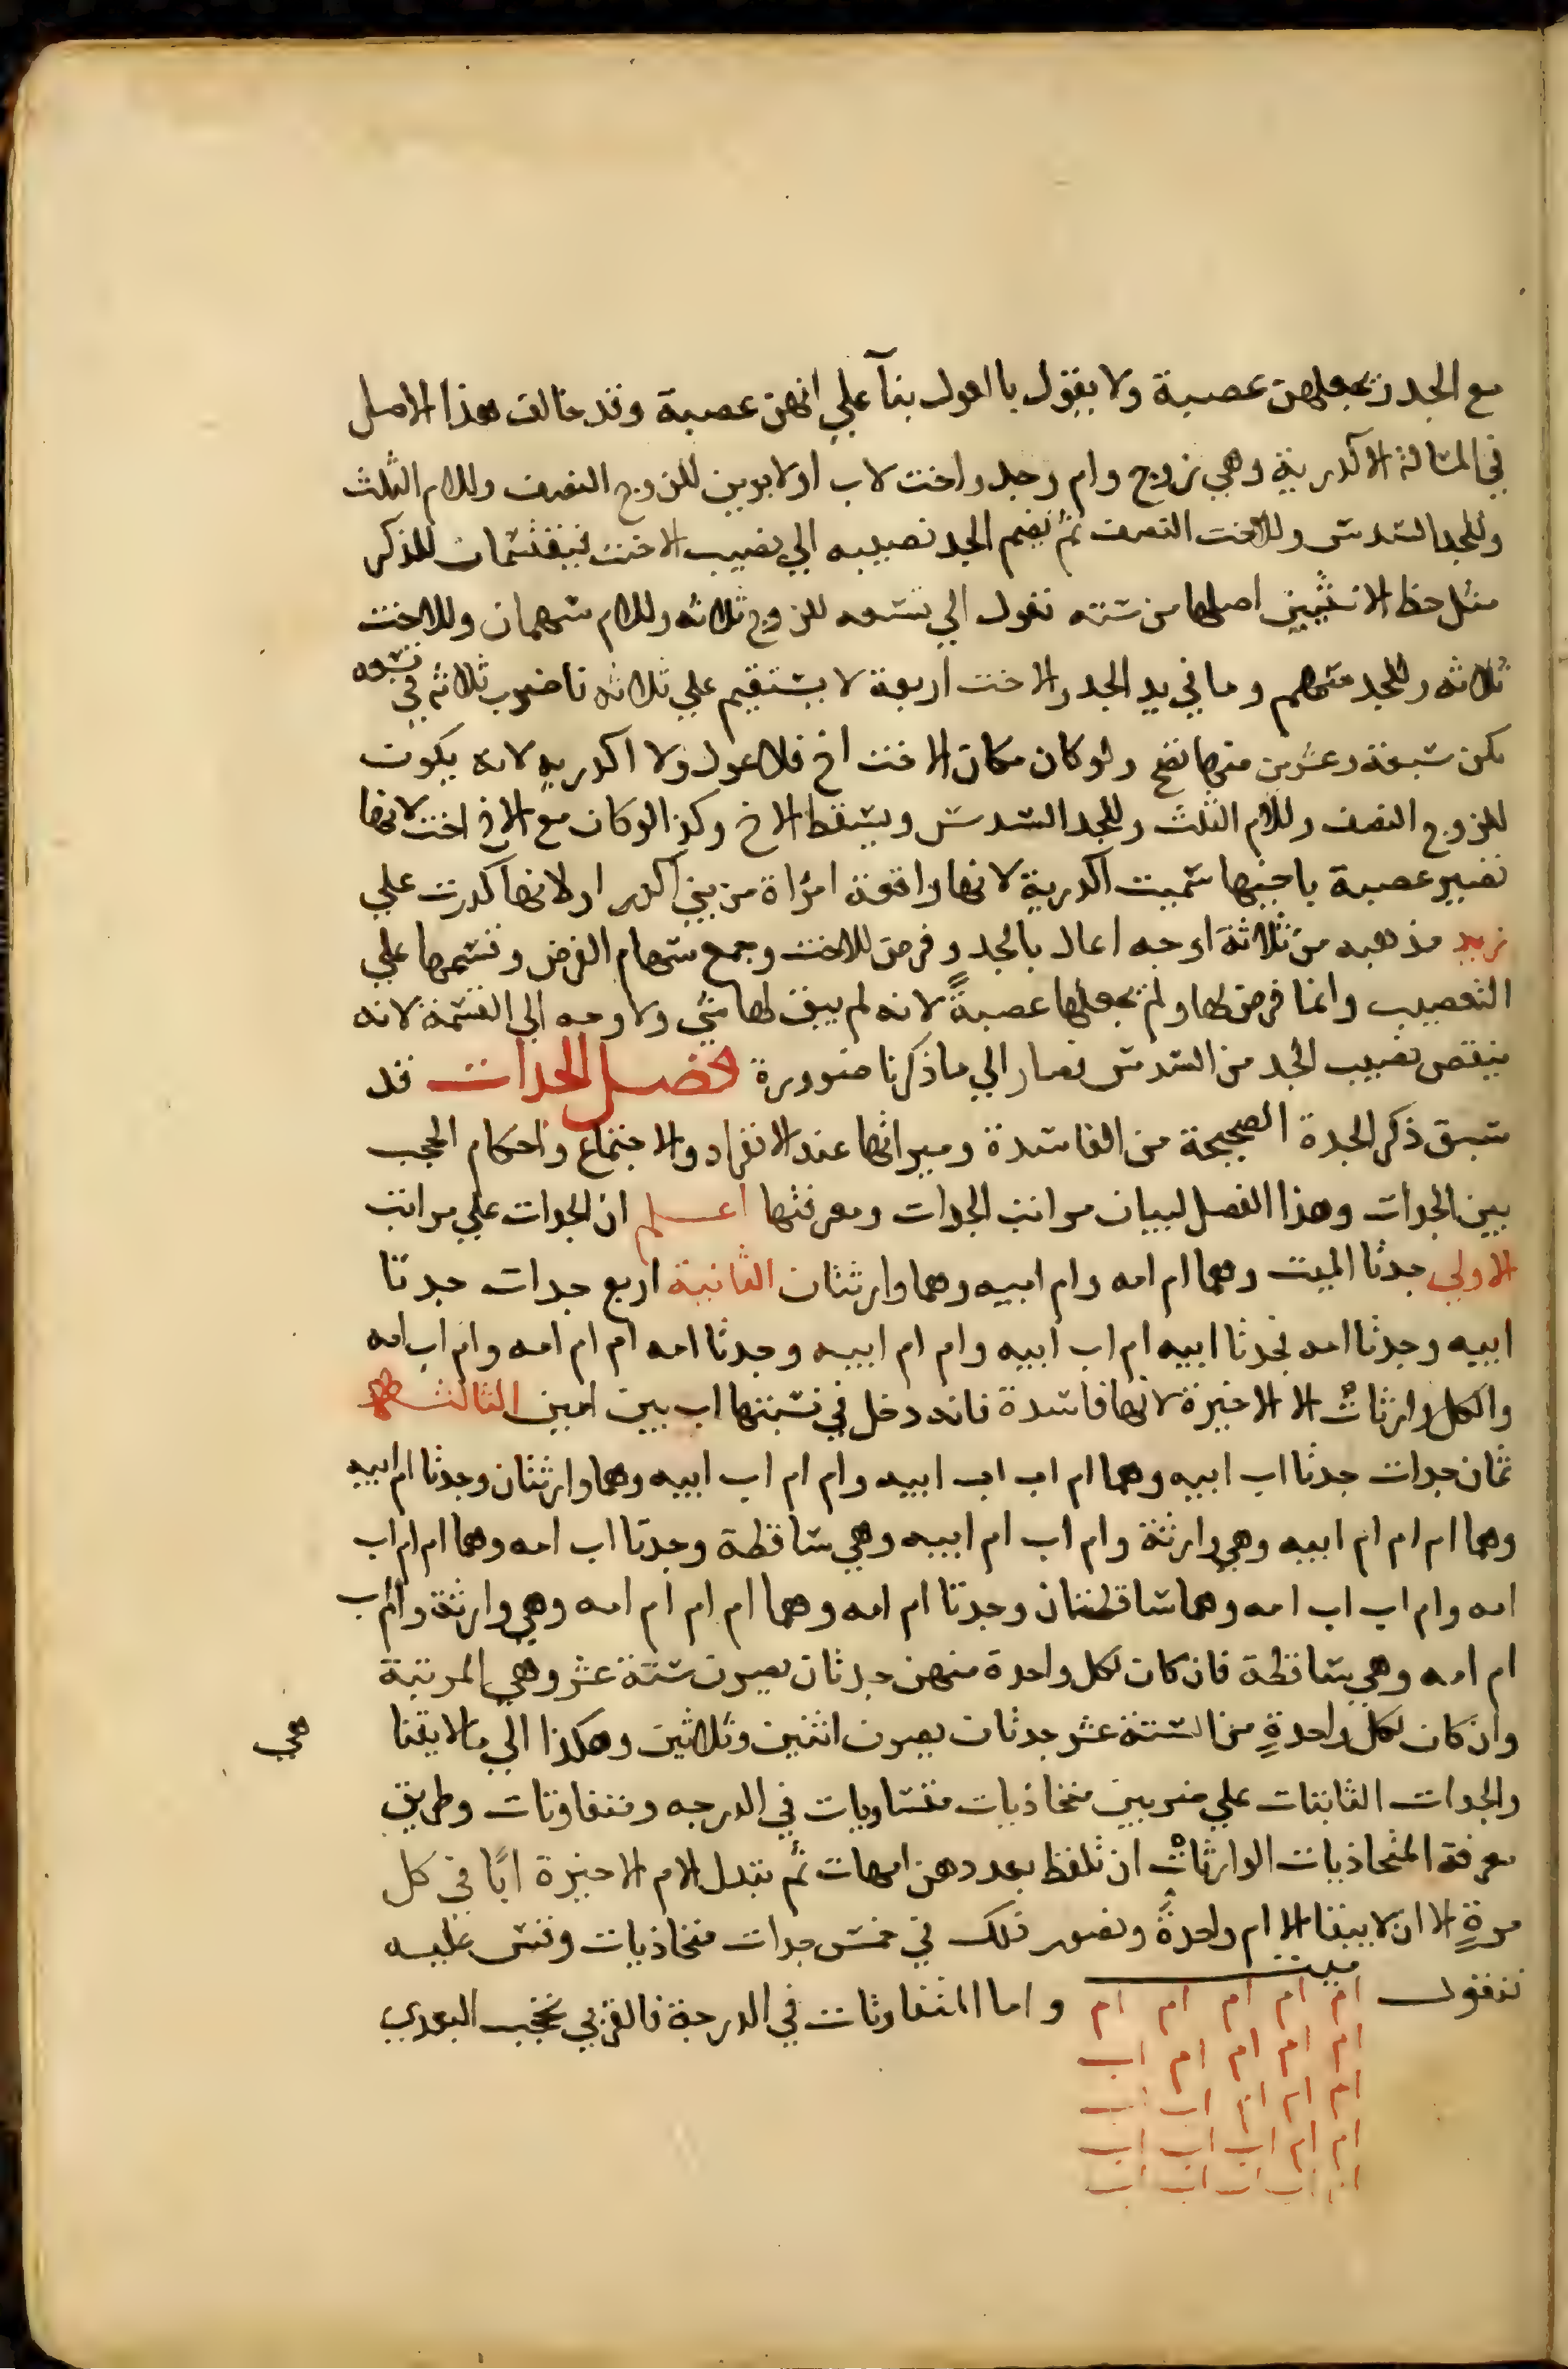 مع الجد ويجعلهن عصبة ولا يقول بالعول بنآ علي انهن عصبة وقد خالف هذا الاصل
في المسالة الاكدرية وهي زوج وام وجد واخت لاب او لابوين للزوج النصف وللام الثلث
وللجد السدس وللاخت النصف ثم يضم الجد نصيبه الي نصيب الاخت فيقتسمان للذكر
مثل حظ الانثيين اصلها من سته تعول الي تسعه للزوج ثلاثه وللام سهمان وللاخت
ثلاثه وللجد سهم وما في يد الجد والاخت اربعة لا يستقيم علي ثلاثه فاضرب ثلاثة في تسعه
يكن سبعة وعشرين منها تصح ولو كان مكان الاخت اخ فلا عول ولا اكدريه لانه يكون
للزوج النصف وللام الثلث وللجد السدس ويسقط الاخ وكذا لو كان مع الاخ اخت لانها
تصير عصبة باخيها سميت اكدرية لانها واقعة امراة من بني اكدر او لانها كدرت علي
زيد مذهبه من ثلاثة اوجه اعال بالجد وفرض للاخت وجمع سهام الفرض وقسمها علي
التعصيب وانما فرض لها ولم يجعلها عصبةً لانه لم يبق لها شي ولا وجه الي القسمة لانه
ينقص نصيب الجد من السدس فصار الي ما ذكرنا ضرورة فصل الجدات قد
سبق ذكر الجدة الصحيحة من الفاسدة وميراثها عند الانفراد والاجتماع واحكام الحجب
بين الجدات وهذا الفصل لبيان مراتب الجدات ومعرفتها اعلم ان الجدات علي مراتب
الاولي جدتا الميت وهما ام امه وام ابيه وهما وارثتان الثانية اربع جدات جدتا
ابيه وجدتا امه فجدتا ابيه ام اب ابيه وام ام ابيه وجدتا امه ام ام امه وام اب امه
والكل وارثاتٌ الا الاخيرة لانها فاسدة فانه دخل في نسبتها اب بين امين الثالثه
ثمان جدات جدتا اب ابيه وهما ام اب اب ابيه وام ام اب ابيه وهما وارثتان وجدتا ام ابيه
وهما ام ام ام ابيه وهي وارثة وام اب ام ابيه وهي ساقطة وجدتا اب امه وهما ام ام اب
امه وام اب اب امه وهما ساقطتان وجدتا ام امه وهما ام ام ام امه وهي وارثة وام اب
ام امه وهي ساقطة فان كان لكل واحدة منهن جدتان يصرن ستة عشر وهي المرتبة
وان كان لكل واحدةٍ من الستة عشر جدتان يصرن اثنين وثلاثين وهكذا الي ما لا يتنا
هي
والجدات الثابتات علي ضربين متحاذيات متساويات في الدرجه ومتفاوتات وطريق
معرفة المتحاذيات الوارثات ان تلفظ بعددهن امهات ثم تبدل الام الاخيرة ابًا في كل
مرةٍ الا ان لا يبقا الا ام واحدةً وتصور ذلك في خمس جدات متحاذيات وقس عليه
فتقول ميت واما المتفاوتات في الدرجة فالقربي تحجب البعدي
ام ام ام ام ام
ام ام ام ام اب
ام ام ام اب اب
ام ام اب اب اب
ام اب اب اب اب